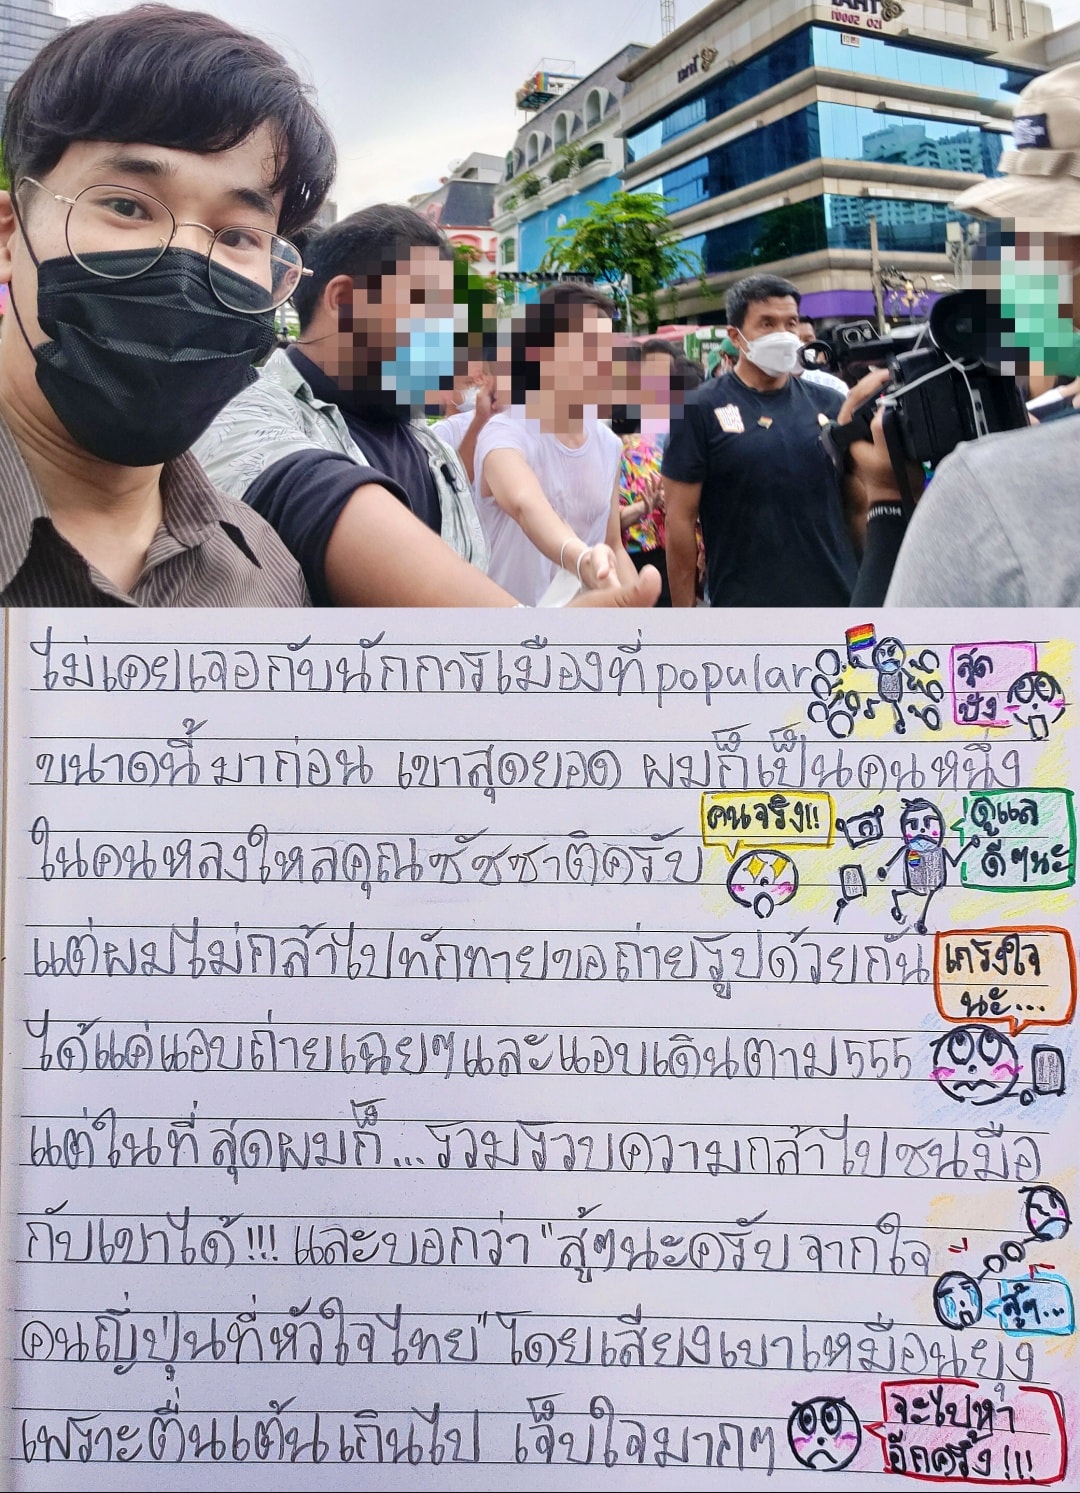 THAI
ISO 50001
THAI
ไม่เคยเจอกับนักการเมืองที่popular
สุด
ปัง
ขนาดนี้มาก่อน เขาสุดยอด ผมก็เป็นคนหนึ่ง
คนจริง!!
ดูแล
ดีๆนะ
ในคนหลงใหลคุณชัชชาติครับ
แต่ผมไม่กล้าไปทักทายขอถ่ายรูปด้วยกัน
เกรงใจ
นะ....
ได้แค่แอบถ่ายเฉยๆและแอบเดินตาม555
แต่ในที่สุดผมก็...รวมรวบความกล้าไปชนมือ
กับเขาได้!!! และบอกว่า "สู้ๆนะครับ จากใจ
สู้ๆ...
คนญี่ปุ่นที่หัวใจไทย" โดยเสียงเบาเหมือนยุง
เพราะตื่นเต้นเกินไป เจ็บใจมากๆ
จะไปหา
อีกครั้ง!!!